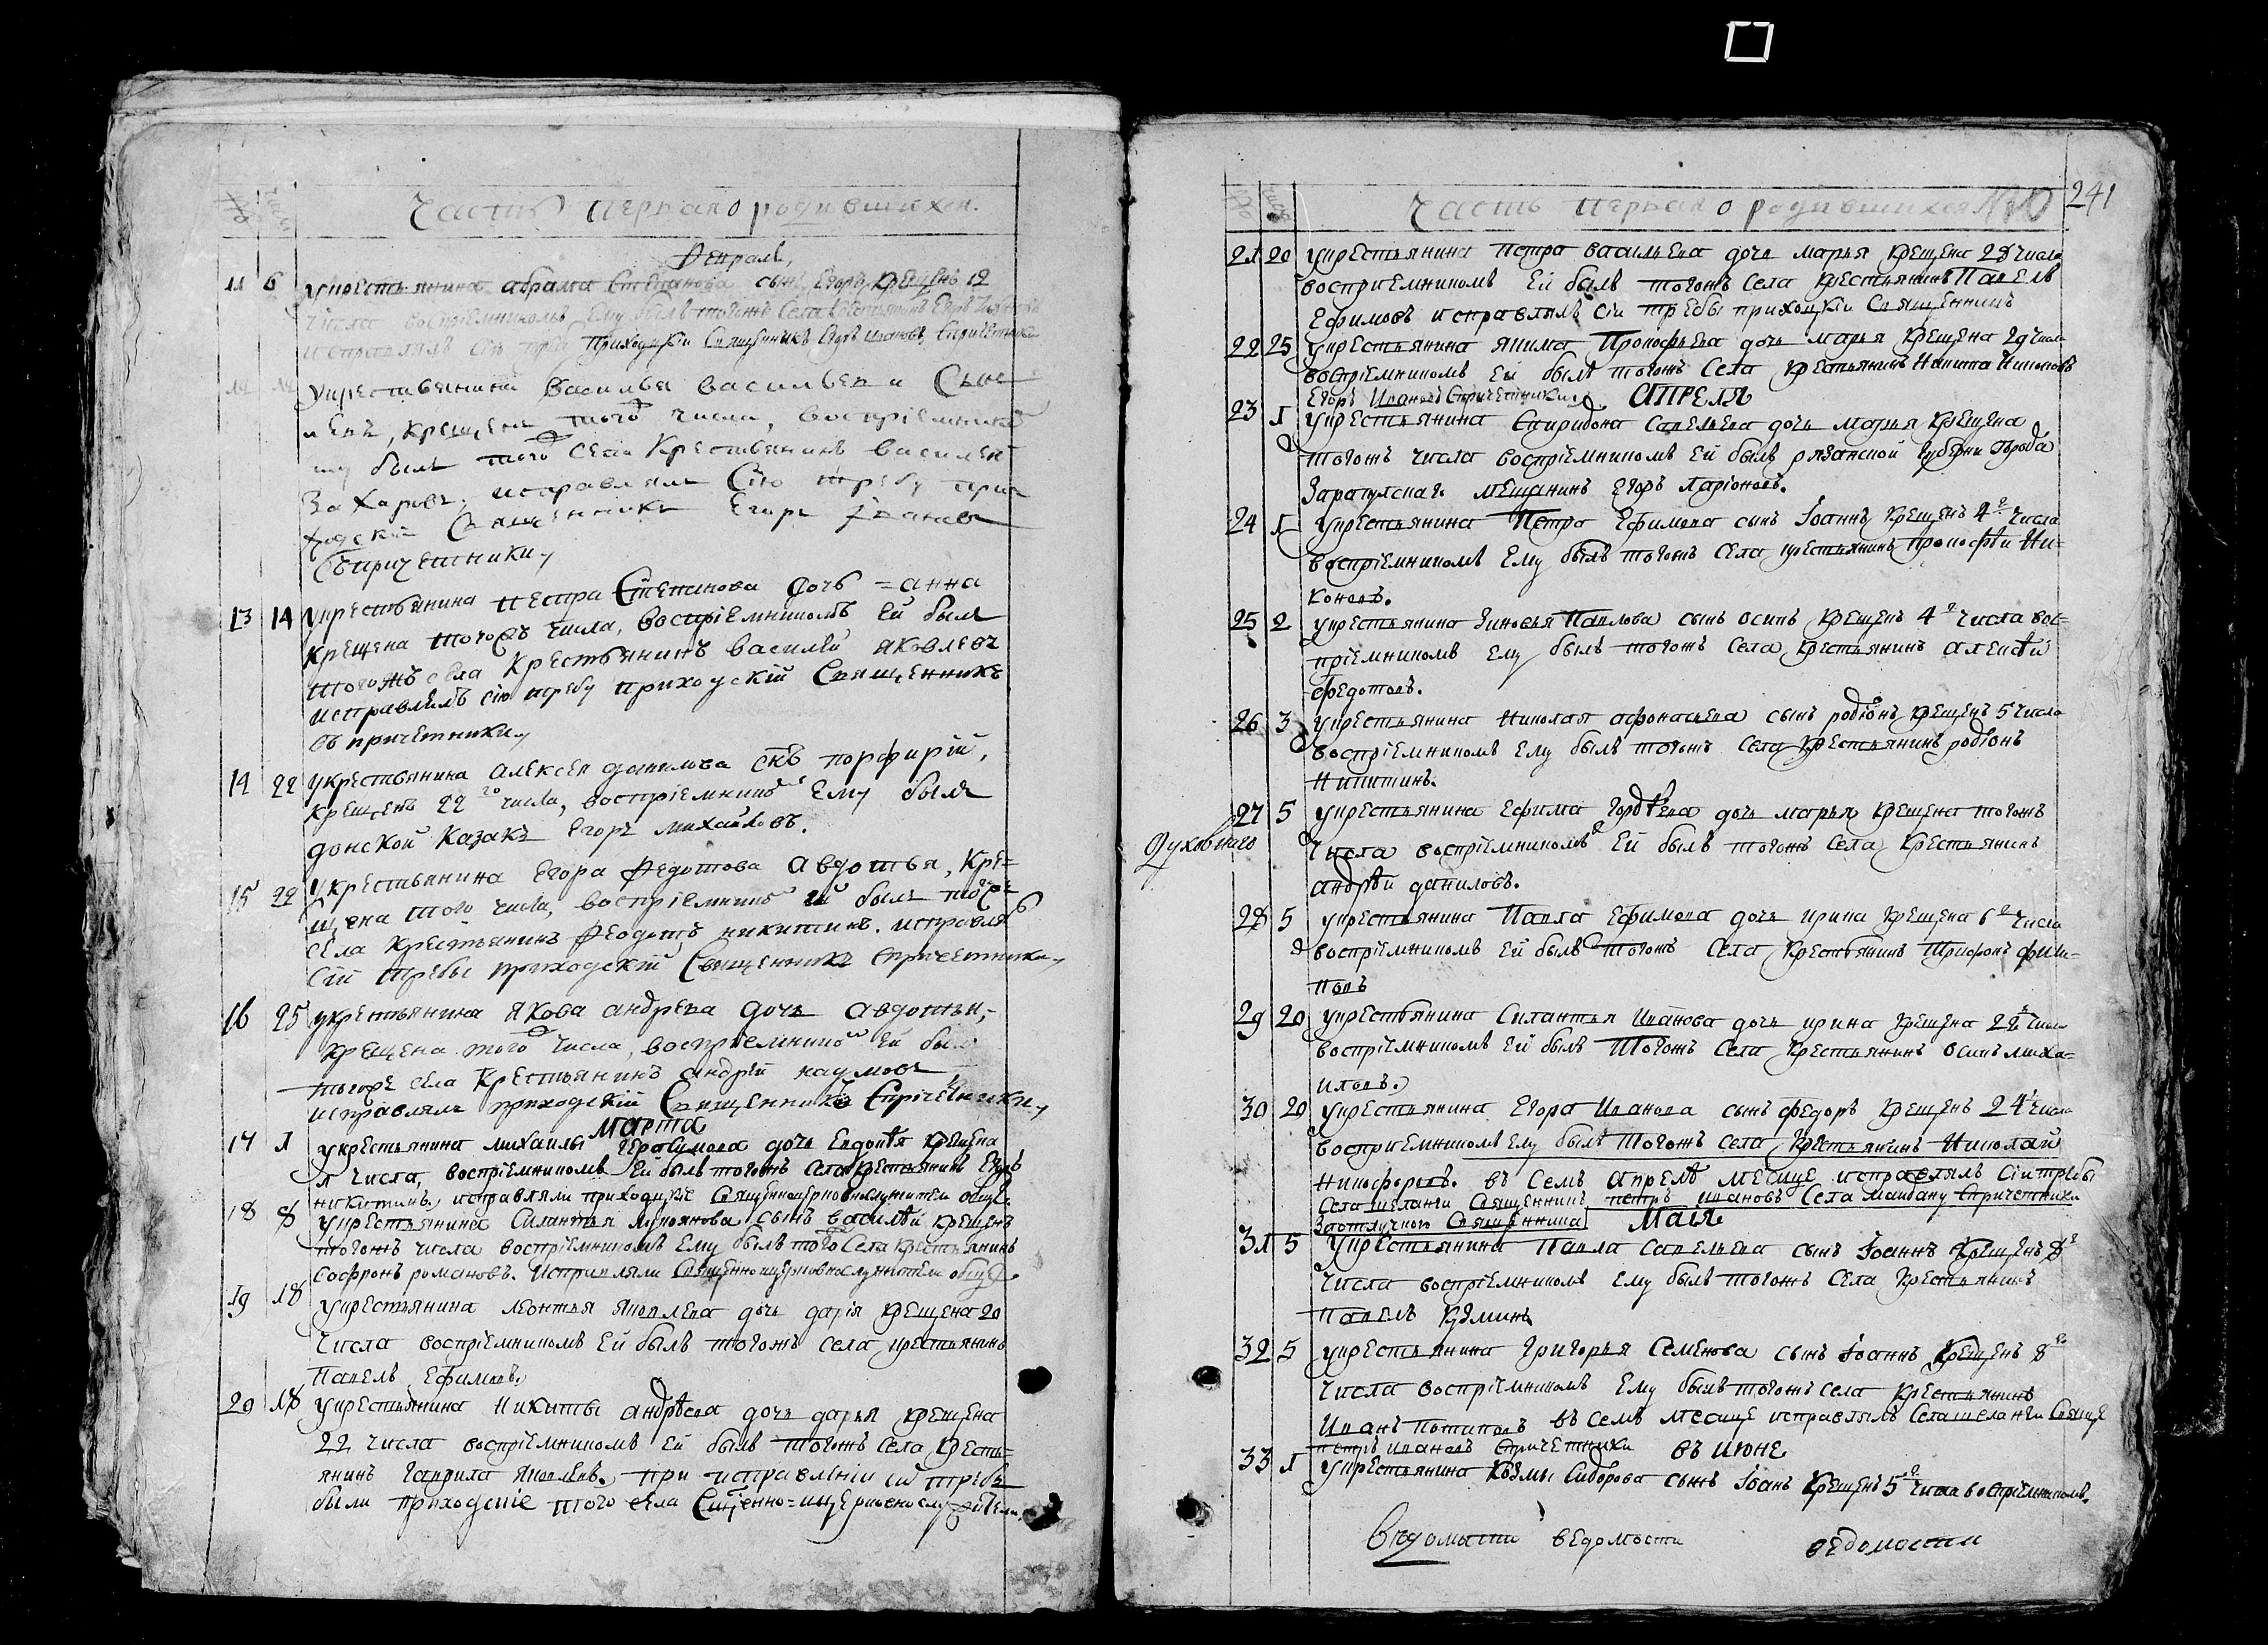 Часть перваꙗ о родившихсꙗ.
Февраль,
11 6 У крестьꙗнина абрама Степанова сынъ Егоръ, крещенъ 12
числа воспрiемникомъ Ему былъ тогожъ Села крестьꙗнинъ Егоръ
исправлꙗлъ приходскiй Свꙗщенникъ Егоръ ивановъ, Спричетники
У крестьꙗнина Васильꙗ васильева Сынъ
крещенъ того числа, воспрiемникомъ
му былъ того села Крестьянинъ василей
Захаровъ, исправлꙗлъ Сiю требу при
ходскiй Свꙗщенникъ Егоръ Iвановъ
Съпричетники,
13 14 У крестьꙗнина петра Степанова дочь = анна
крещена тогожъ числа, воспрiемникомъ Ей былъ
тогожъ села Крестьꙗнинъ василей ꙗковлевъ
исправлꙗлъ сiю требу приходскiй Свꙗщенникъ
съ причетники,
14 22 У крестьꙗнина алексеꙗ данилова сн̃ъ порфирiй,
крещенъ 22го числа, воспрiемникъ Ему былъ
донской казакъ Егоръ михайловъ.
15 22 У крестьꙗнина Егора Федотова авдотьꙗ, Кре=
щена того числа, воспрiемникомъ ей былъ тогожъ
села Крестьꙗнинъ Феодотъ никитинъ. исправлꙗлъ
сiи требы приходскiй Свꙗщенникъ Спричетники,
16 25 У крестьꙗнина ꙗкова андреева дочь авдотьꙗ,
крещена того числа, воспрiемникомъ Ей былъ
тогожъ села Крестьꙗнинъ андрей наумовъ
исправлꙗлъ приходскiй Свꙗщенникъ Спричетники,
Марта
17 1 У крестьꙗнина михаилы Герасимова дочь Евдокѣꙗ крещена
1 числа, воспрiемникомъ Ей былъ тогожъ села крестьꙗнинъ Егоръ
никитинъ. исправлꙗли приходскiе Свꙗщенноцерковнослужители обще.
18 8 У крестьꙗнина Силантьꙗ лукоꙗнова сынъ василѣй крещенъ
тогожъ числа воспрiемникомъ Ему былъ того Села крестьꙗнинъ
Софронъ романовъ. Исправлꙗли Свꙗщенноцерковнослужители обще.
19 18 У крестьꙗнина леонтьꙗ ꙗковлева дочь дарiꙗ крещена 20
числа воспрiемникомъ Ей былъ тогожъ села крестьꙗнинъ
Павелъ Ефимовъ.
20 18 У крестьꙗнина Никиты андрѣева дочь дарьꙗ крещена
22 числа воспрiемникомъ Ей былъ тогожъ Села кресть=
ꙗнинъ Гаврила ꙗковлевъ. при исправленiи сй требъ
были приходскiе того села Сщ̃енно=церковнослужители.
Часть перваꙗ о родившихсꙗ 241
21 20 У крестьꙗнина петра васильева дочь марьꙗ крещена 28 числа
воспрiемникомъ Ей былъ тогожъ Села крестьꙗнинъ Павелъ
Ефимовъ исправлꙗлъ сiи требы приходскiй Свꙗщенникъ
22 25 У крестьꙗнина ꙗкима Прокофьева дочь марьꙗ крещена 29 числа
воспрiемникомъ Ей былъ тогожъ Села крестьꙗнинъ Никита Никоновъ
Егоръ Ивановъ Спричетники. АПРЕЛꙗ
23 1 У крестьꙗнина Спиридона Савельева дочь марьꙗ крещена
тогожъ числа воспрiемникомъ Ей былъ рꙗзанской губерни Города
Зарапускаг. мещанинъ Егоръ ларiоновъ.
24 1 У крестьꙗнина Петра Ефимова сынъ Iоаннъ крещенъ 4го числа
воспрiемникомъ Ему былъ тогожъ села крестьꙗнинъ прокофѣй Ни=
коновъ.
25 2 У крестьꙗнина Зиновьꙗ Павлова сынъ осипъ крещенъ 4го числа вос=
прiемникомъ Ему былъ тогожъ села крестьꙗнинъ алексѣй
федотовъ.
26 3 У крестьꙗнина Николаꙗ афонасьева сынъ родiонъ крещенъ 5 числа
воспрiемникомъ Ему былъ тогожъ села крестьꙗнинъ родiонъ
Никитинъ.
27 5 У крестьꙗнина Ефима Гордѣева дочь марьꙗ крещена тогожъ
Духовнаго числа воспрiемникомъ Ей былъ тогожъ Села крестьꙗнинъ
андрѣй даниловъ.
28 5 У крестьꙗнина Павла Ефимова дочь ирина крещена 6го числа
воспрiемникомъ Ей былъ тогожъ Села крестьꙗнинъ Трифонъ фили=
повъ
29 20 У крестьꙗнина Силантьꙗ Иванова дочь ирина крещена 22го числа
воспрiемникомъ Ей былъ Тогожъ Села крестьꙗнинъ осипъ миха=
иловъ.
30 20 У крестьꙗнина Егора Иванова сынъ федоръ крещенъ 24го числа
воспрiемникомъ Ему былъ Тогожъ Села крестьꙗнинъ Николай
Никофоровъ. въ Семъ Апрелѣ месꙗце исправлꙗлъ Сiи требы
Села шеланги Свꙗщенникъ петръ ивановъ Села майдану Спричетники
Заотлучкою Свꙗщенника МАIꙗ
31 5 У крестьꙗнина Павла Савельева сынъ Iоаннъ крещенъ 8го
числа воспрiемникомъ Ему былъ тогожъ Села крестьꙗнинъ
Павелъ Кузминъ
32 5 У крестьꙗнина Григорьꙗ Семенова сынъ Iоаннъ крещенъ 8го
числа воспрiемникомъ Ему былъ тогожъ села крестьꙗнинъ
Иванъ Потиповъ въ Семъ месꙗце исправлꙗлъ Села шеланги Свꙗще
петръ ивановъ Спричетники ВЪ ИЮНЕ
33 1 У крестьꙗнина Козмы Сидорова сынъ Iоанъ крещенъ 5го числа воспрiемникомъ.
Вѣдомости ведомости ведомости